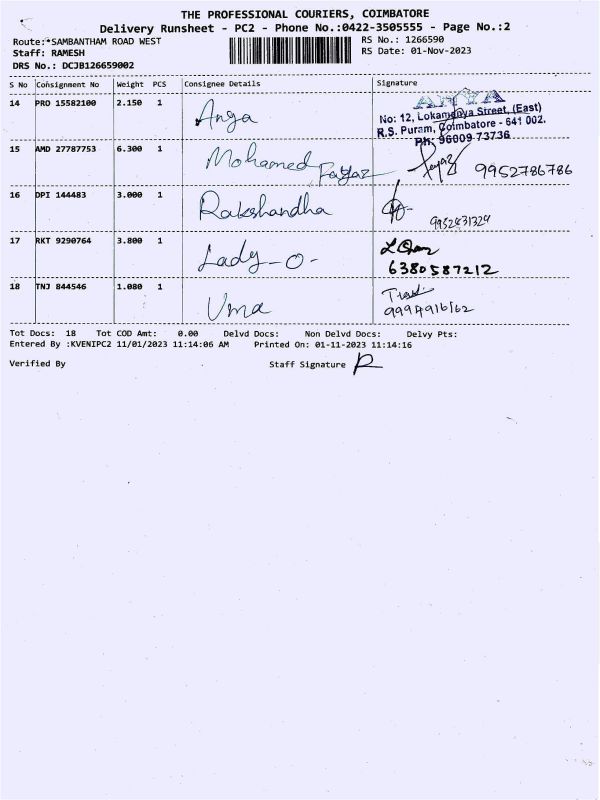 THE PROFESSIONAL COURIERS, COIMBATORE
Delivery Runsheet - PC2 - Phone No.:0422-3505555 - Page No.:2
Route:*SAMBANTHAM ROAD WEST RS No.: 1266590
Staff: RAMESH RS Date: 01-Nov-2023
DRS No.: DCJB126659002
S No Consignment No Weight PCS Consignee Details Signature
14 PRO 15582100 2.150 1 Anga
ANYA
No: 12, Lokamanya Street, (East)
R.S. Puram, Coimbatore - 641 002.
Ph: 96009 73736
15 AMD 27787753 6.300 1 Mohamed Fayaz 9952786786
16 DPI 144483 3.000 1 Rakshandha 9952431324
17 RKT 9290764 3.800 1 Lady-O-
6380587212
18 TNJ 844546 1.080 1 Uma
Tot Docs: 18 Tot COD Amt: 0.00 Delvd Docs: Non Delvd Docs: Delvy Pts:
Entered By :KVENIPC2 11/01/2023 11:14:06 AM Printed On: 01-11-2023 11:14:16
Verified By Staff Signature R